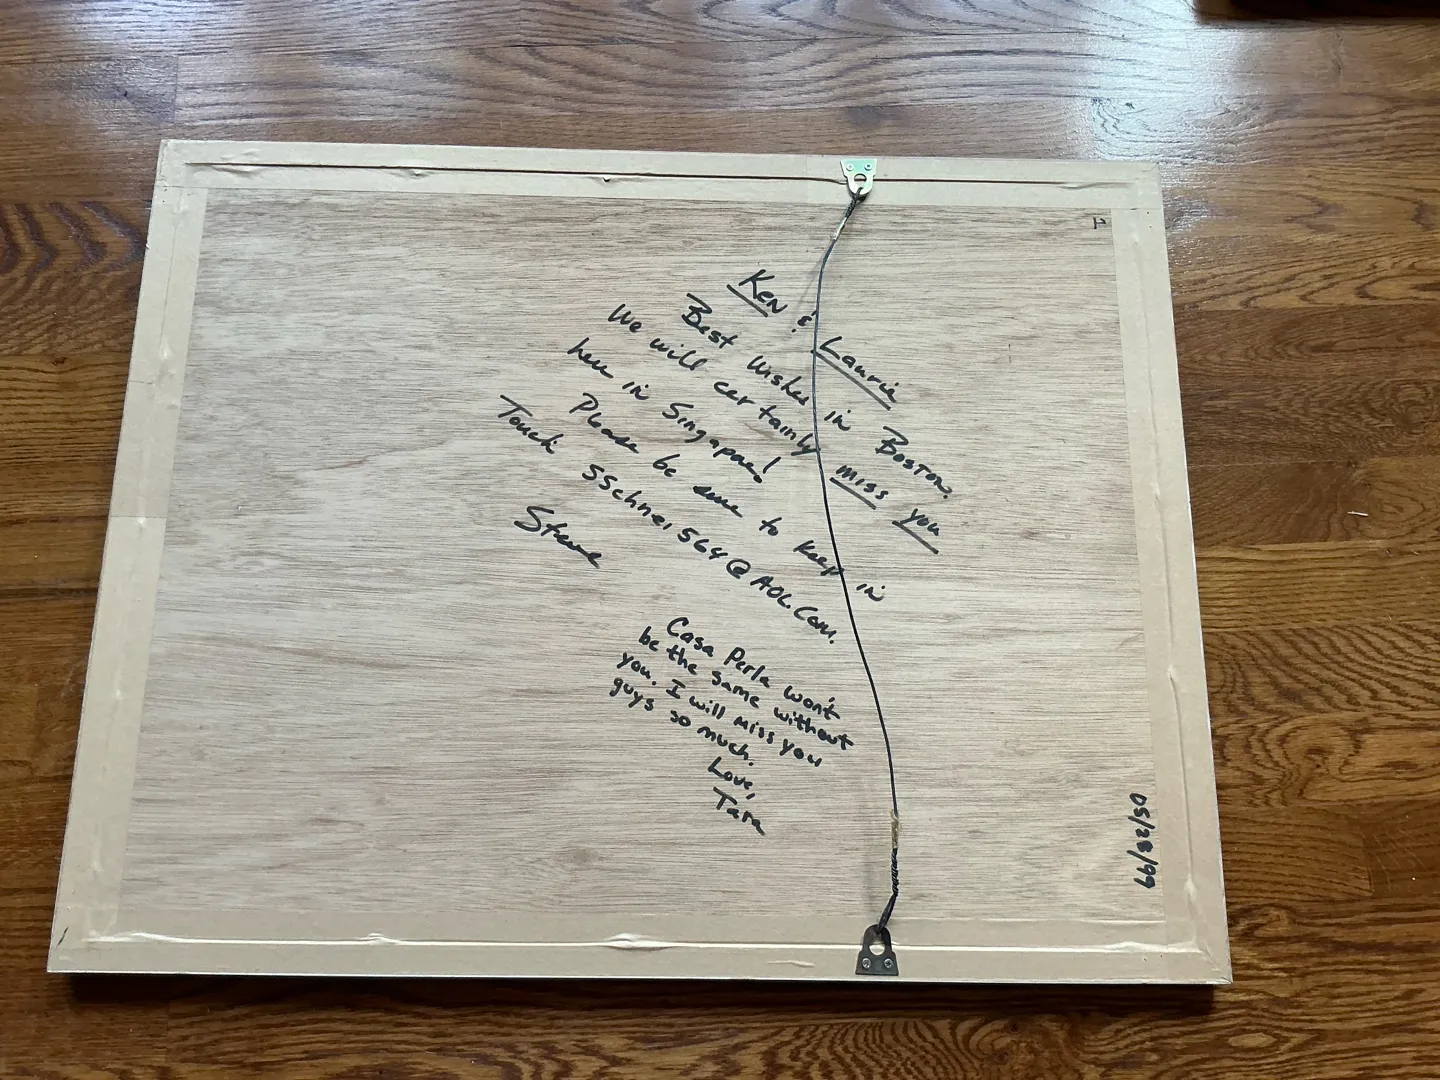 Ken & Laurie
Best Wishes in Boston.
We will certainly miss you
here in Singapore!
Please be sure to keep in
Touch SSchnei564@AOL.Com.
Steve
Casa Perla won't
be the same without
you. I will miss you
guys so much.
Love,
Tara
05/28/99